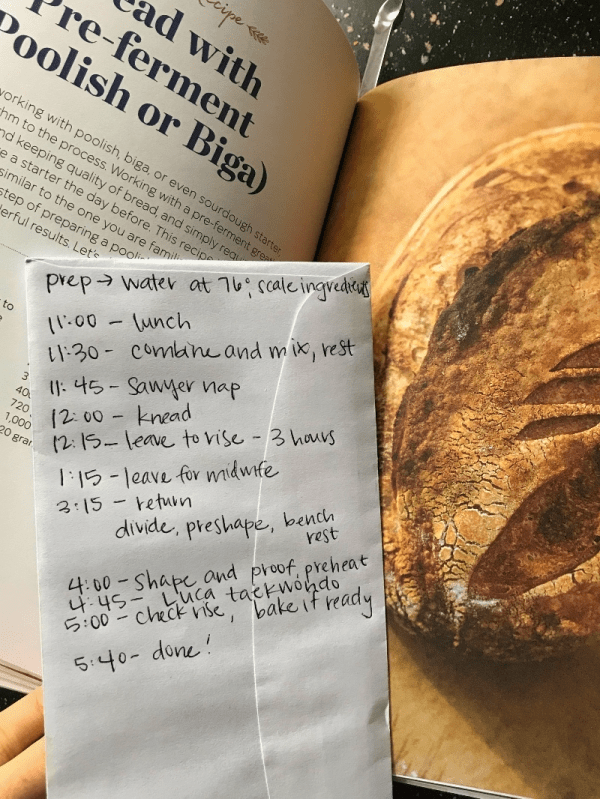 Recipe
ead with
Pre-ferment
Poolish or Biga)
working with poolish, biga, or even sourdough starter
hm to the process. Working with a pre-ferment
nd keeping quality of bread, and simply
e a starter the day before. This recipe
similar to the one you are
step of preparing a
erful results. Let's
to
3
720
1,000
20 gra
prep → water at 76°, scale ingredients
11:00 - lunch
11:30 - combine and mix, rest
11:45 - Sawyer nap
12:00 - knead
12:15 - leave to rise - 3 hours
1:15 - leave for midwife
3:15 - return
divide, preshape, bench
rest
4:00 - Shape and proof, preheat
4:45 - Luca taekwondo
5:00 - check rise, bake if ready
5:40 - done!